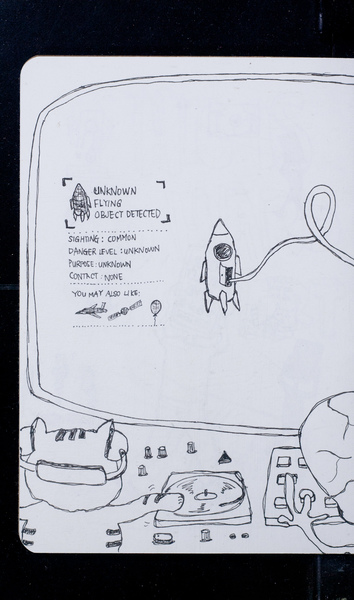 UNKNOWN
FLYING
OBJECT DETECTED
SIGHTING: COMMON
DANGER LEVEL: UNKNOWN
PURPOSE: UNKNOWN
CONTACT: NONE
YOU MAY ALSO LIKE: